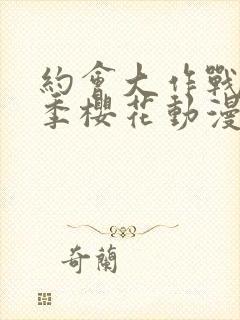 約會大作戰
季櫻花動漫
奇蘭